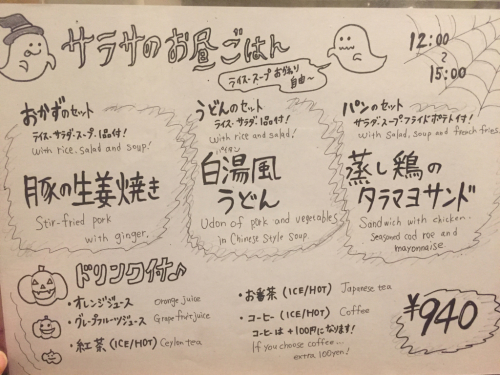 サラサのお昼ごはん
ライス・スープ おかわり
自由〜
12:00
〜
15:00
おかずのセット
ライス・サラダ・スープ・1品付!
with rice, salad and soup!
豚の生姜焼き
Stir-fried pork
with ginger.
うどんのセット
ライス・サラダ・1品付!
with rice and salad!
パイタン
白湯風
うどん
Udon of pork and vegetables
in Chinese Style soup
パンのセット
サラダ・スープフライドポテト付!
with salad, soup and french fries
蒸し鶏の
タラマヨサンド
Sandwich with chicken.
Seasoned cod roe and
mayonnaise
ドリンク付♪
・オレンジジュース orange juice
・グレープフルーツジュース Grapefruit juice
・紅茶 (ICE/HOT) Ceylon tea
・お番茶 (ICE/HOT) Japanese tea
・コーヒー (ICE/HOT) Coffee
コーヒーは+100円になります!
If you choose coffee...
extra 100yen!
¥940